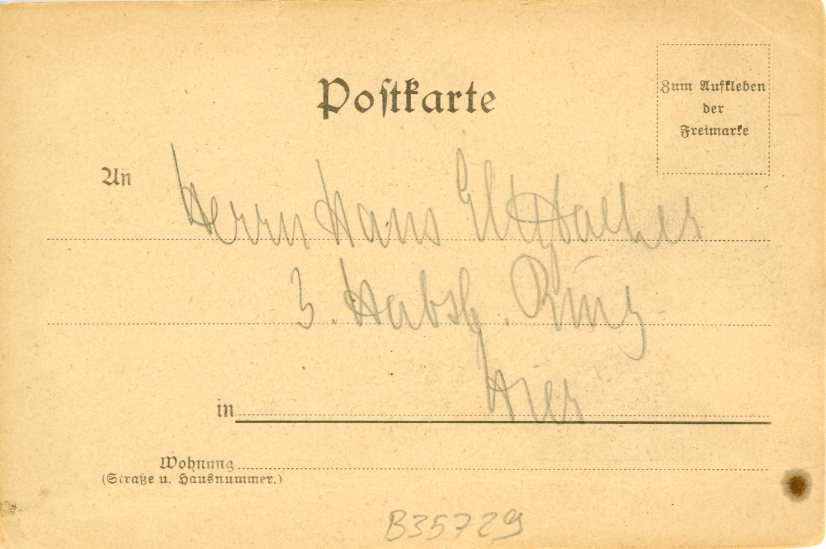 Postkarte
Zum Aufkleben
der
Freimarke
An
Herrn Hans
3. Habsb. Ring
in Hier
Wohnung
(Straße u. Hausnummer.)
B35729